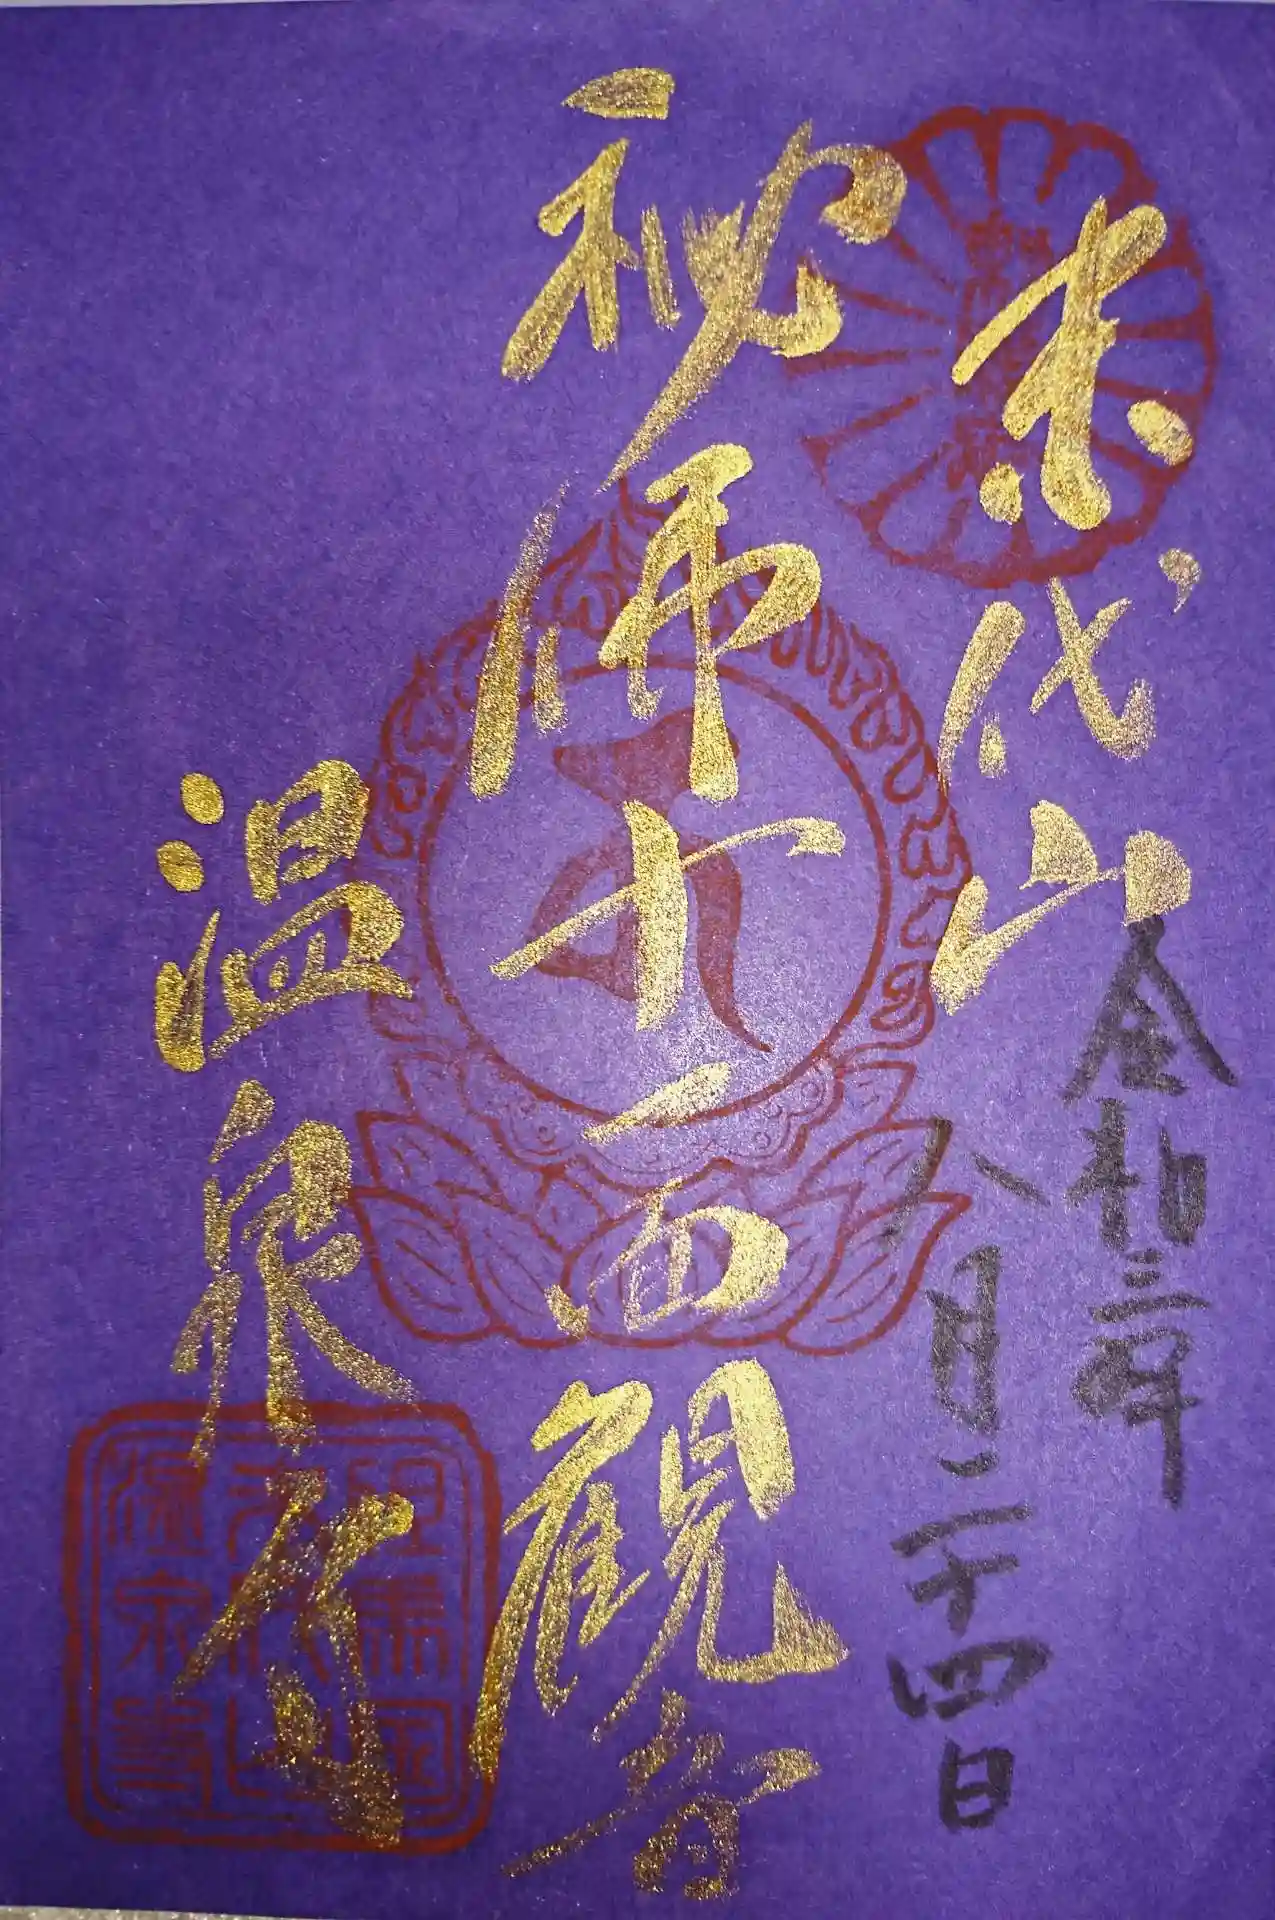 末代山
令和三年
八月二十四日
秘佛十一面観音
温泉寺
但馬国
末代山